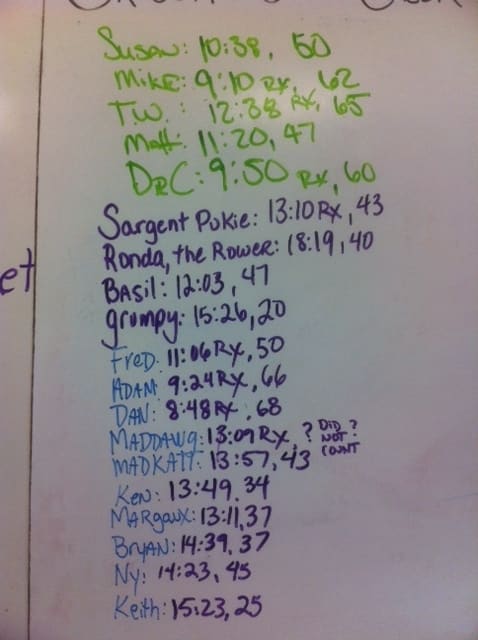 Susan: 10:38, 50
Mike: 9:10 RX, 62
T.W.: 12:38 RX, 65
Matt: 11:20, 47
DRC: 9:50 RX, 60
Sargent Pukie: 13:10 RX, 43
Ronda, the Rower: 18:19, 40
et
BASil: 12:03, 47
grumpy: 15:26, 20
FReD: 11:06 RX, 50
ADAM 9:24 RX, 66
DAN: 8:48 RX, 68
MADDAWg: 13:09 RX, ? DiD NOT COUNT ?
MADKATT: 13:57, 43
Ken: 13:49, 34
MARgaux: 13:11, 37
BRyAN: 14:39, 37
Ny: 14:23, 45
Keith: 15:23, 25